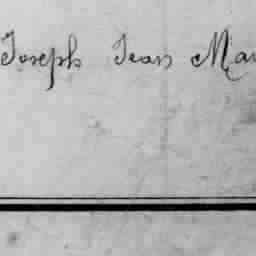 Joseph Jean Mar